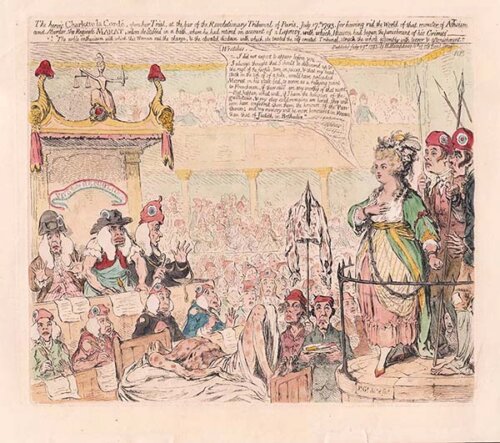 The heroic Charlotte la Cordé, upon her Trial, at the bar of the Revolutionary Tribunal of Paris, July 17th 1793, for having rid the World of that monster of Atheism
and Murder, the Regicide MARAT, whom she Stabbed in a bath, where he had retired on account of a Leprosy, with which, Heaven had begun the punishment of his Crimes.
"The noble enthusiasm with which this Woman met the charge, & the elevated disdain with which she treated the self created Tribunal, struck the whole assembly with terror & astonishment."
Wretches,
I did not expect to appear before you
I always thought that I should be delivered up to
the rage of the people, torn in pieces, & that my head,
stuck on the top of a pike, would have preceded
Marat on his state-bed, to serve as a rallying point
to Frenchmen, if there still are any worthy of that name.
But, happen what will, if I have the honours of the
guillotine, & my clay-cold remains are buried, they will
soon have conferred upon them the honours of the
Pantheon; and my memory will be more honored in France
than that of Judith in Bethulia.